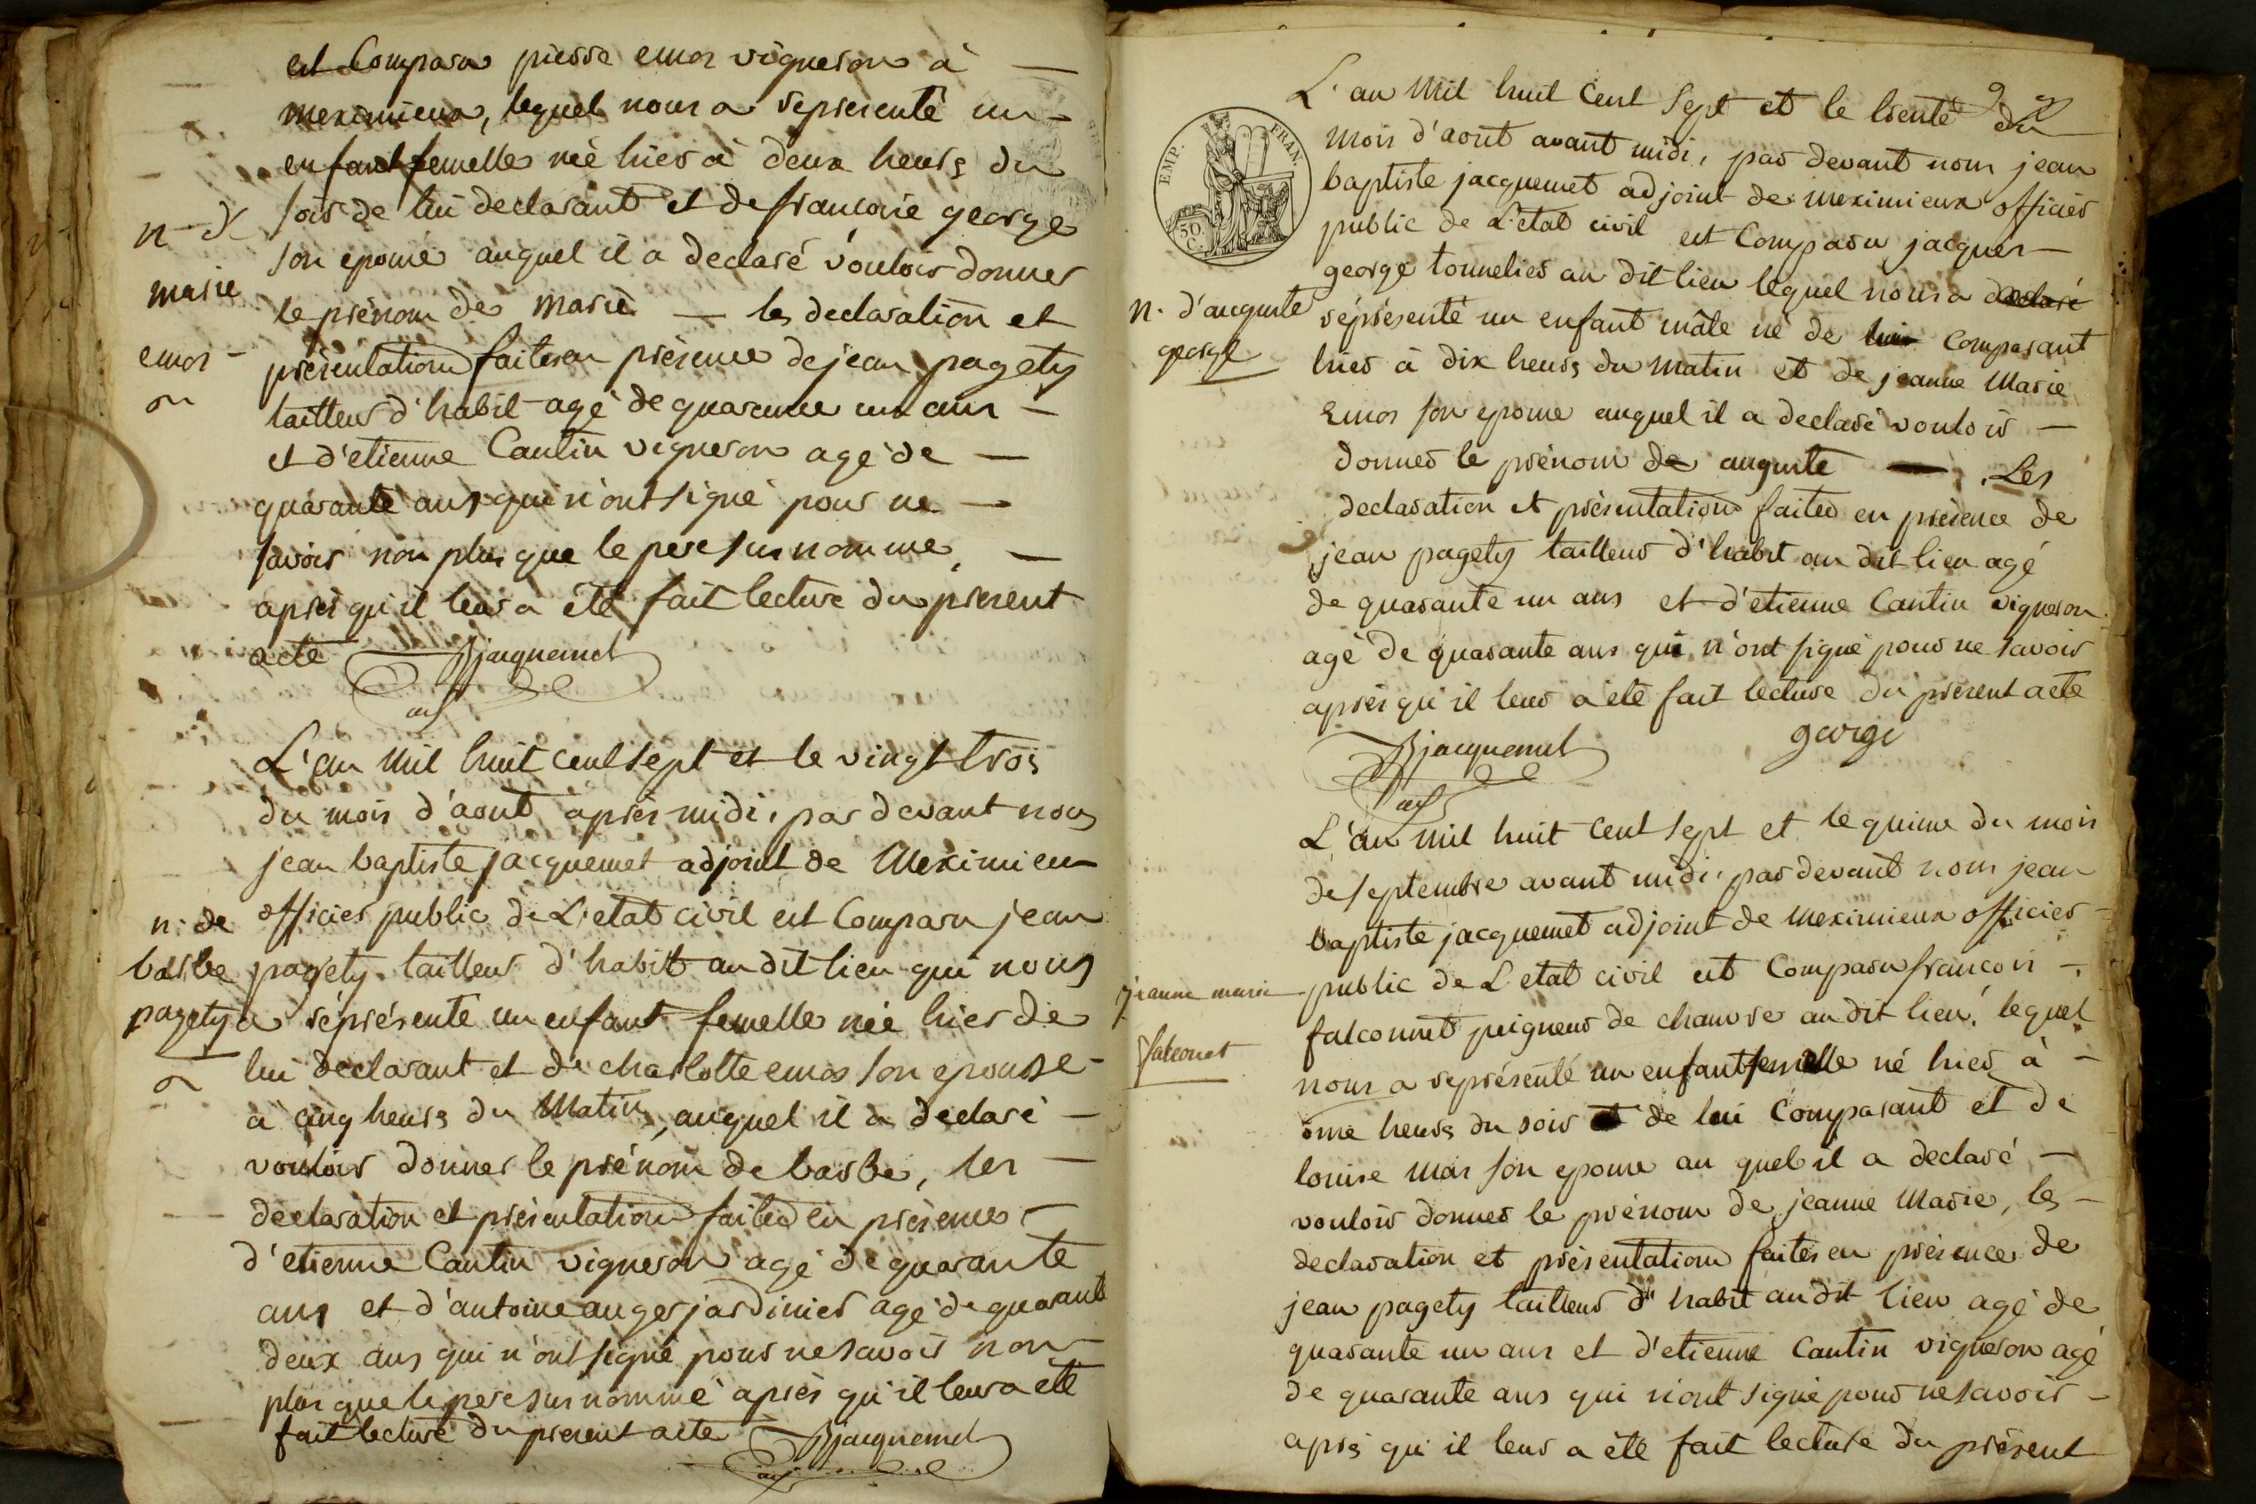 est Comparu pierre emor vigneron à —
meximieux, lequel nous a représenté un -
enfant femelle née hier à deux heurs du
soir de lui declarant et de francoise george
son epouse auquel il a declaré vouloir donner
le prénom de marie — les declaration et
présentation faites en présence de jean pagety
tailleur d'habit agé de quarante un ans —
et d'etienne Cantin vigneron agé de —
quarante ans qui n'ont signé pour ne —
savoir non plus que le pere susnommé, —
après qu'il leur a été fait lecture du present
acte JBjacquemet
adj
n- d
marie
emor -
L'an mil huit cent sept et le vingt trois
du mois d'aout après midi, par devant nous
jean baptiste jacquemet adjoint de Meximieu
officier public de L'etat civil est Comparu jean
pagety tailleur d'habit au dit lieu qui nous
a réprésenté un enfant femelle née hier de
lui declarant et de charlotte emor son epousse -
à cinq heurs du Matin, auquel il a declaré —
vouloir donner le prénom de barbe, les —
declaration et présentation faites en présence —
d'etienne Cantin vigneron agé de quarante
ans et d'antoine auger jardinier agé de quarante
deux ans qui n'ont signé pour ne savoir non
plus que le pere susnommé après qu'il leur a été
fait lecture du present acte JBjacquemet
adj
n. de
barbe
pagety
9
L'an Mil huit Cent Sept et le trente du
mois d'aout avant midi, par devant nous jean
baptiste jacquemet adjoint de meximieux officier
public de L'etat civil est Comparu jacques —
george tonnelier au dit lieu lequel nous a declaré
réprésenté un enfant mâle né de lui comparant
hier à dix heurs du matin et de jeanne Marie
Emor son epouse auquel il a declaré vouloir —
donner le prénom de auguste — . Les
declaration et présentation faites en présence de
jean pagety tailleur d'habit au dit lieu agé
de quarante un ans et d'etienne Cantin vigneron
agé de quarante ans qui n'ont signé pour ne savoir
après qu'il leur a été fait lecture du présent acte
JBjacquemet george
adj
EMP. FRAN.
50
C.
n. d'auguste
george
L'an mil huit cent sept et le quinze du mois
de septembre avant midi, par devant nous jean
baptiste jacquemet adjoint de meximieux officier -
public de L'etat civil est Comparu francois -
falconnet peigneur de chanvre au dit lieu, lequel
nous a représenté un enfant femelle né hier à -
onze heurs du soir et de lui Comparant et de
louise mor son epouse au quel il a declaré —
vouloir donner le prénom de jeanne Marie, les -
declaration et présentation faites en présence de
jean pagety tailleur d'habit au dit lieu agé de
quarante un ans et d'etienne Cantin vigneron agé
de quarante ans qui n'ont signé pour ne savoir -
après qu'il leur a été fait lecture du présent
jeanne marie
falconet